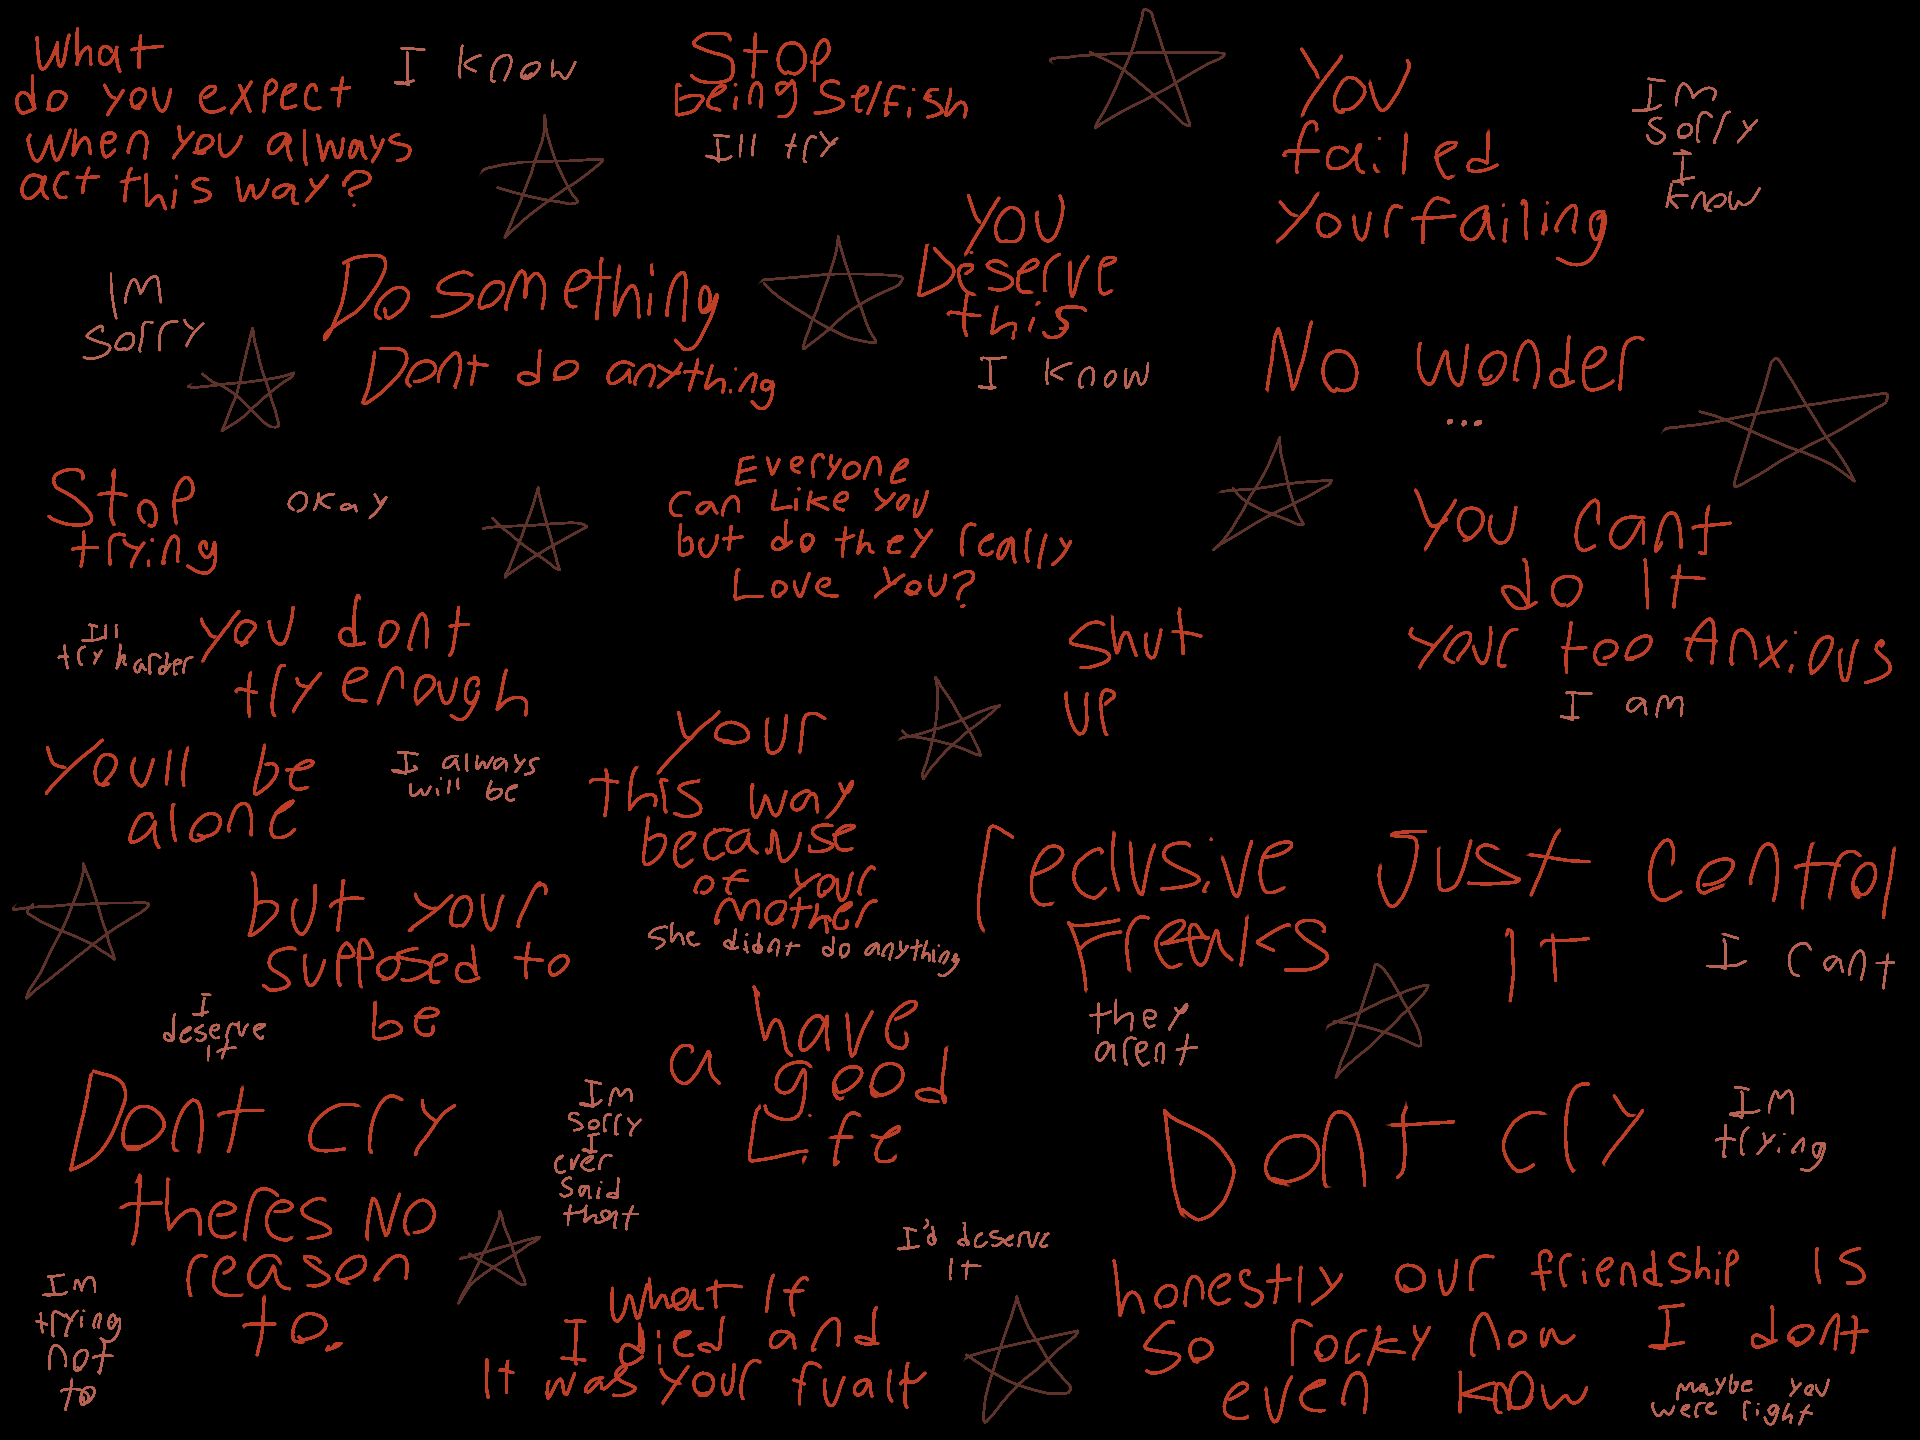 What
do you expect
when you always
act this way?
I know
Stop
being selfish
Ill try
You
failed
Your failing
Im
sorry
I
know
Im
sorry
Do something
Dont do anything
You
Deserve
this
I know
No wonder
...
Stop
trying
okay
Everyone
can Like you
but do they really
Love you?
You cant
do It
your too Anxious
I am
Ill
try harder
you dont
try enough
Shut
up
Youll be
alone
I always
will be
Your
this way
because
of your
mother
she didnt do anything
reclusive
Freaks
they
arent
Just Control
It
I cant
but your
supposed to
be
I
deserve
it
have
a good
Life
Dont cry
theres No
reason
to.
Im
trying
not
to
Im
sorry
I
ever
said
that
Dont cry
Im
trying
I'd deserve
it
what If
I died and
It was your fualt
honestly our friendship is
So rocky now I dont
even know
maybe you
were right